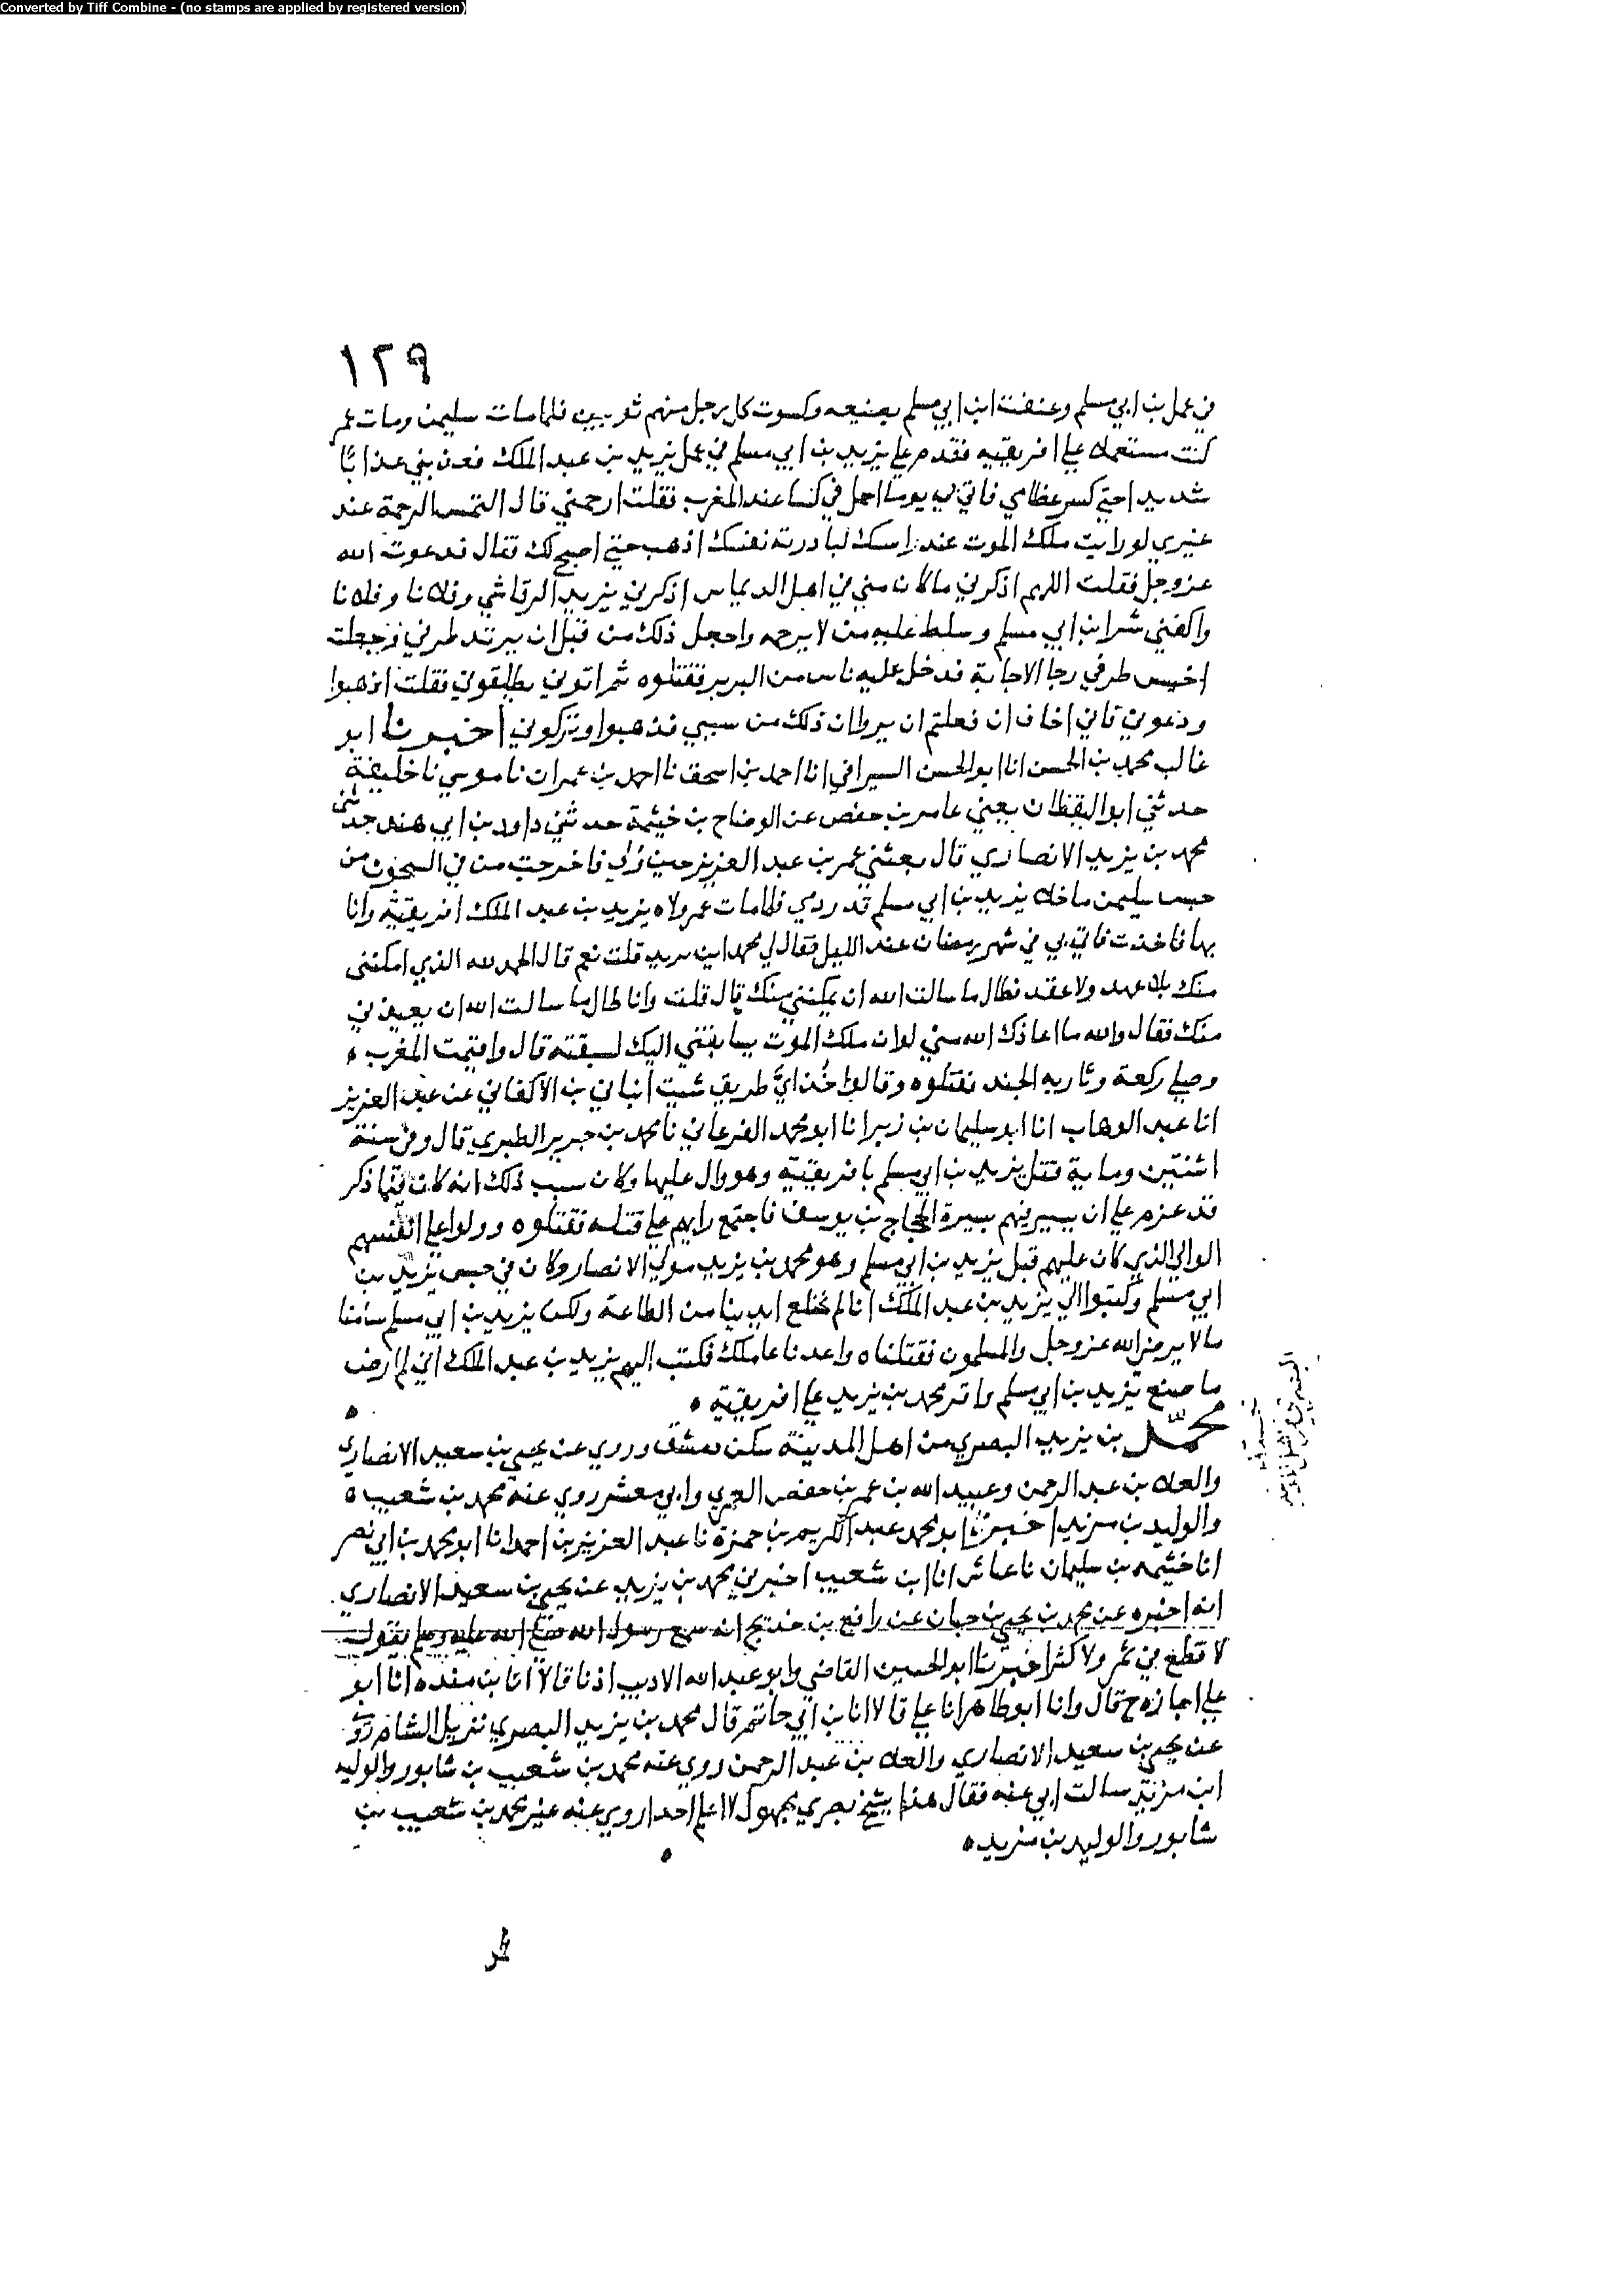 Converted by Tiff Combine - (no stamps are applied by registered version)
١٢٩
في عمل بن ابي مسلم وعنفت ابن ابي مسلم بصنيعه وكسوت كل رجل منهم ثوبين فلما مات سليمن ومات عمر
كنت مستعمله علي افريقيه فقدم علي يزيد بن ابي مسلم في عمل يزيد بن عبد الملك فعذبني عذابا
شديدا حتي كسر عظامي فاتي بي يوما احمل في كسا عند المغرب فقلت ارحمني قال التمس الرحمة عند
غيري لو رايت ملك الموت عند راسك لبادرته نفسك اذهب حتي اصبح لك فقال فدعوت الله
عز وجل فقلت اللهم اذكرني ما كان مني في اهل الديماس اذكرني يزيد الرقاشي وفلانا وفلانا
واكفني شر ابن ابي مسلم وسلط عليه من لا يرحمه واجعل ذلك من قبل ان يرتد طرفي فجعلت
احبس طرفي رجا الاجابة فدخل عليه ناس من البربر فقتلوه ثم اتوني يطلقوني فقلت اذهبوا
ودعوني فاني اخاف ان فعلتم ان يروا ان ذلك من سببي فذهبوا وتركوني اخبرنا ابو
غالب محمد بن الحسن انا ابو الحسن السيرافي انا احمد بن اسحق نا احمد بن عمران نا موسي نا خليفة
حدثني ابو اليقظان يعني عامر بن حفص عن الوضاح بن خيثمة حدثني داود بن ابي هند حدثني
محمد بن يزيد الانصاري قال بعثني عمر بن عبد العزيز حين ولي فاخرجت من في السجون من
حبس سليمن ما خلا يزيد بن ابي مسلم فلما مات عمر ولاه يزيد بن عبد الملك افريقية وانا
بها فاخذت فاتي بي في شهر رمضان عند الليل فقال لي محمد ابن يزيد قلت نعم قال الحمد لله الذي امكنني
منك بلا عهد ولا عقد فطال ما سالت الله ان يمكنني منك قال قلت وانا طال ما سالت الله ان يعيذني
منك فقال والله ما اعاذك الله مني لو ان ملك الموت سابقني اليك لسبقته قال واقيمت المغرب ه
وصلي ركعة وثار به الجند فقتلوه وقالوا خذ اي طريق شيت انباني بن الاكفاني عن عبد العزيز
انا عبد الوهاب انا ابو سليمان بن زبر انا ابو محمد الفرغاني نا محمد بن جرير الطبري قال وفي سنة
اثنتين وماية قتل يزيد بن ابي مسلم بافريقية وهو وال عليها وكان سبب ذلك انه كان فيما ذكر
قد عزم علي ان يسير فيهم بسيرة الحجاج بن يوسف فاجتمع رايهم علي قتله فقتلوه وولوا علي انفسهم
الوالي الذي كان عليهم قبل يزيد بن ابي مسلم وهو محمد بن يزيد مولي الانصار وكان في حبس يزيد بن
ابي مسلم وكتبوا الي يزيد بن عبد الملك انا لم نخلع ايدينا من الطاعة ولكن يزيد بن ابي مسلم سامنا
ما لا يرضي الله عز وجل والمسلمون فقتلناه واعدنا عاملك فكتب اليهم يزيد بن عبد الملك اني لم ارض
ما صنع يزيد بن ابي مسلم واقر محمد بن يزيد علي افريقية ه
محمد بن يزيد البصري من اهل المدينة سكن دمشق وروي عن يحيي بن سعيد الانصاري
والعلا بن عبد الرحمن وعبيد الله بن عمر بن حفص العمري وابي معشر روي عنه محمد بن شعيب ه
والوليد بن مزيد اخبرنا ابو محمد عبد الكريم بن حمزة نا عبد العزيز بن احمد انا ابو محمد بن ابي نصر
انا خيثمه بن سليمان نا عباس انا ابن شعيب اخبرني محمد بن يزيد عن يحيي بن سعيد الانصاري
انه اخبره عن محمد بن يحيي بن حبان عن رافع بن خديج انه سمع رسول الله صلي الله عليه وسلم يقول
لا قطع في ثمر ولا كثر اخبرنا ابو الحسين القاضي وابو عبد الله الاديب اذنا قالا انا بن منده انا ابو
علي اجازه ح قال وانا ابو طاهر انا علي قالا انا بن ابي حاتم قال محمد بن يزيد البصري نزيل الشام روي
عن يحيي بن سعيد الانصاري والعلا بن عبد الرحمن روي عنه محمد بن شعيب بن شابور والوليد
ابن مزيد سالت ابي عنه فقال هذا شيخ بصري مجهول لا اعلم احدا روي عنه غير محمد بن شعيب بن
شابور والوليد بن مزيد ه